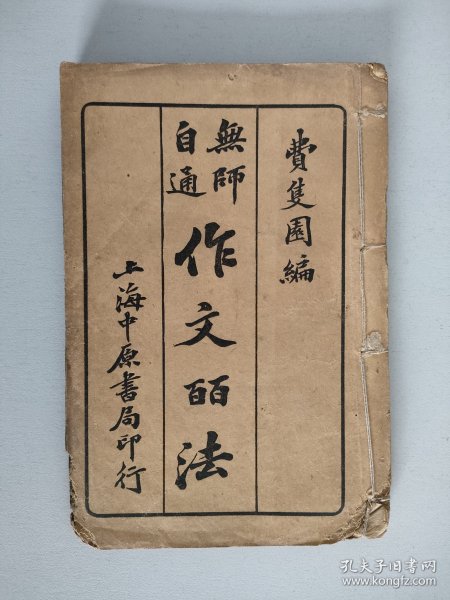 費隻園編
無師
自通
作文百法
上海中原書局印行
孔夫子旧书网
www.kongfz.com